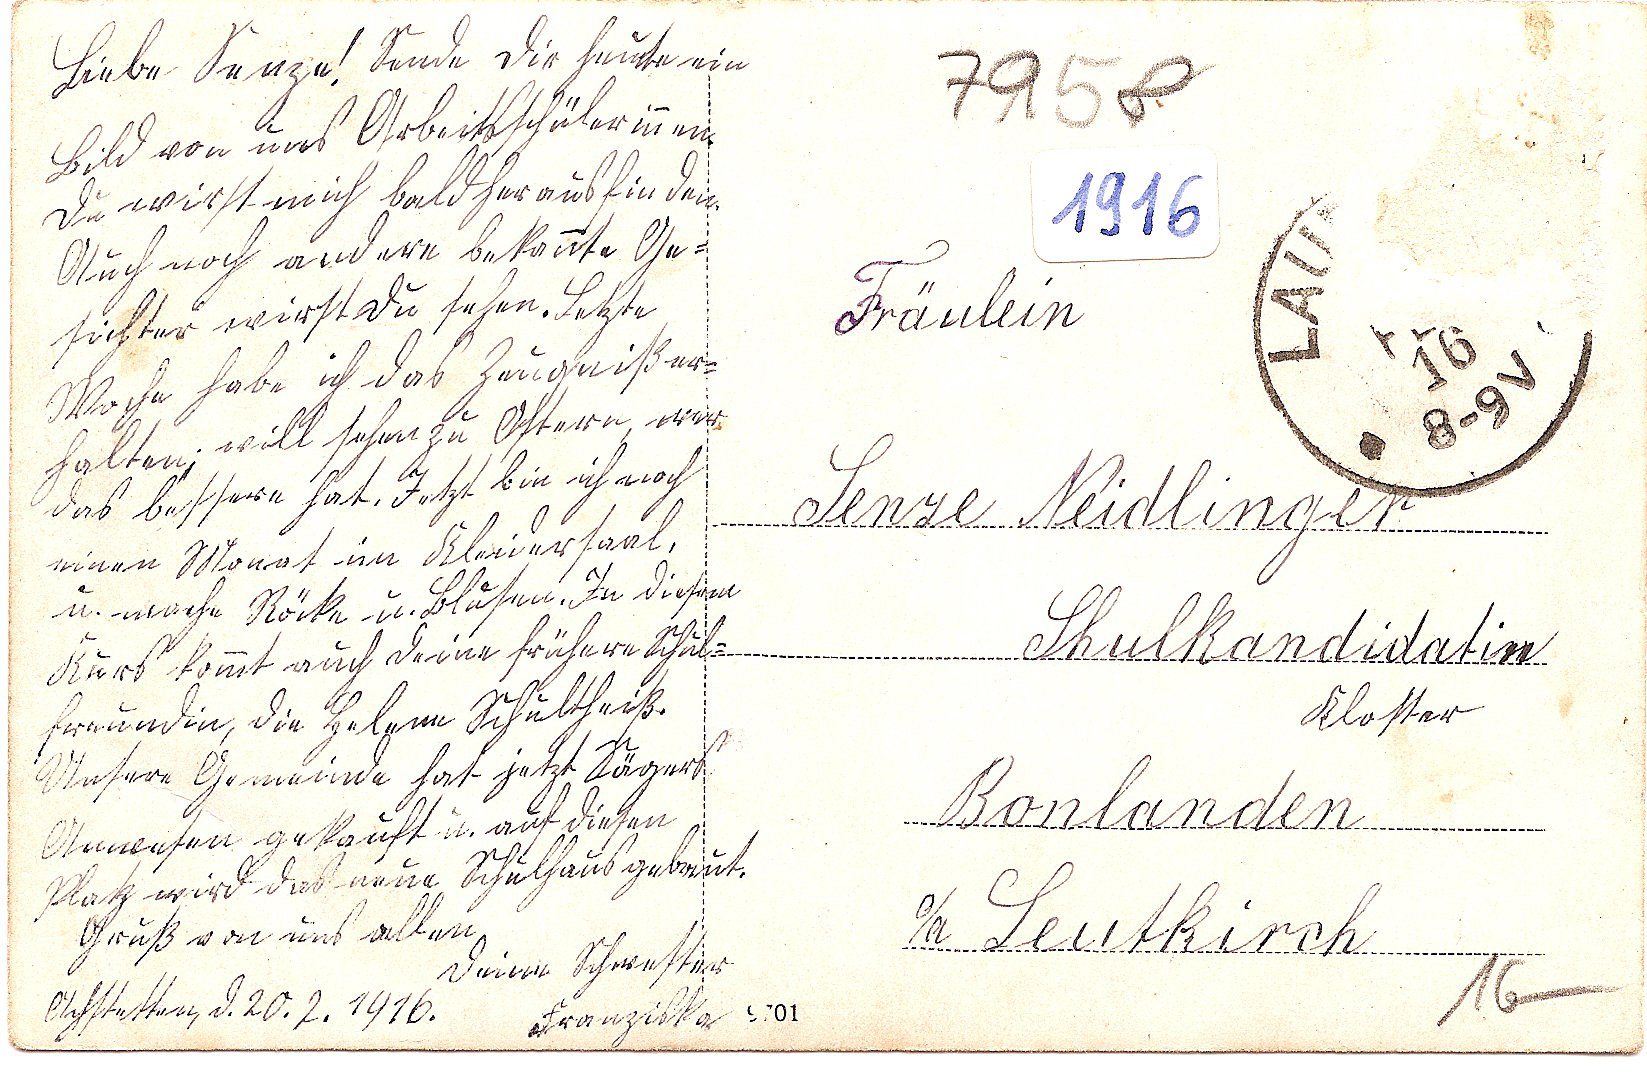 Liebe Senze! Sende Dir heute ein
Bild von uns Arbeitsschülerinnen.
Du wirst mich bald herausfinden.
Auch noch andere bekannte Ge=
sichter wirst Du sehen. Letzte
Woche habe ich das Zeugniß er=
halten; will sehen zu Ostern, wer
das bessere hat. Jetzt bin ich noch
einen Monat im Kleidersaal,
u. mache Röcke u. Blusen. In diesem
Kurs kommt auch Deine frühere Schul=
freundin, die Helene Schultheiß.
Unsere Gemeinde hat jetzt Sägers
Anwesen gekauft u. auf diesen
Platz wird das neue Schulhaus gebaut.
Gruß von uns allen
Deine Schwester
Achstetten, d. 20. 2. 1916.
Franziska
7958
1916
Fräulein
Senze Neidlinger
Schulkandidatin
Kloster
Bonlanden
o/a Leutkirch
16
LAU
16
8-9V
5701